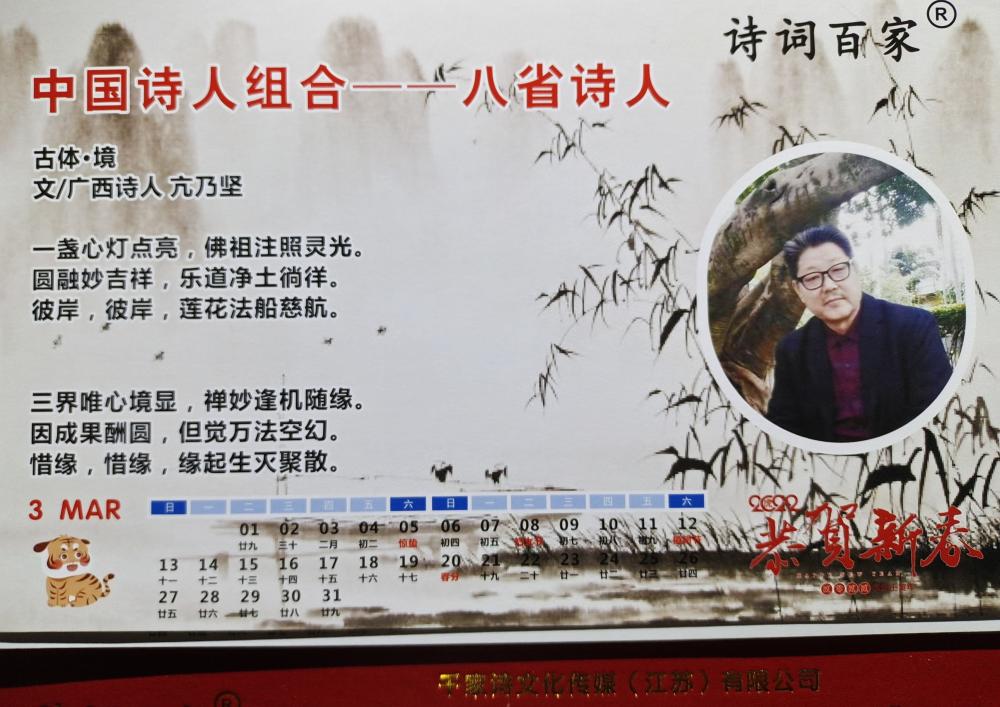 诗词百家®
中国诗人组合——八省诗人
古体·境
文/广西诗人 亢乃坚
一盏心灯点亮，佛祖注照灵光。
圆融妙吉祥，乐道净土徜徉。
彼岸，彼岸，莲花法船慈航。
三界唯心境显，禅妙逢机随缘。
因成果酬圆，但觉万法空幻。
惜缘，惜缘，缘起生灭聚散。
3 MAR
日 一 二 三 四 五 六 日 一 二 三 四 五 六
01 02 03 04 05 06 07 08 09 10 11 12
廿九 三十 二月 初二 惊蛰 初四 初五 妇女节 初七 初八 初九 植树节
13 14 15 16 17 18 19 20 21 22 23 24 25 26
十一 十二 十三 十四 十五 十六 十七 春分 十九 二十 廿一 廿二 廿三 廿四
27 28 29 30 31
廿五 廿六 廿七 廿八 廿九
2022
恭贺新春
千家诗文化传媒（江苏）有限公司
®